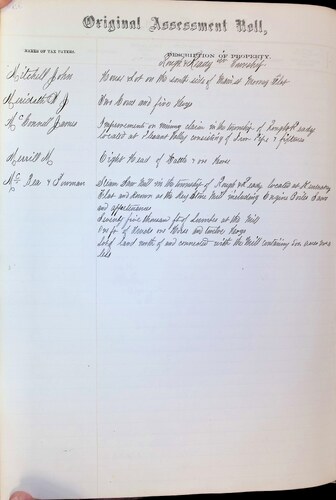 Original Assessment Roll,
NAMES OF TAX PAYERS.
DESCRIPTION OF PROPERTY.
Rough & Ready Township
Mitchell John
House & Lot on the south side of Main st
Meredith
One Cow and five Hogs
McConnell James
Improvements on mining claim in the township of Rough & Ready
located at Pleasant Valley consisting of Iron Pipe & fixtures
Merrill M
Eight Head of Cattle & one Horse
Mc & Bowman
Steam Saw Mill in the township of Rough & Ready located at
Flat and known as the Key Stone Mill including Engine Boiler Saws
and appurtenances
Seventy five thousand ft of Lumber at the Mill
one Horse and twelve Hogs
land north of and connected with the Mill containing ten acres more or
less